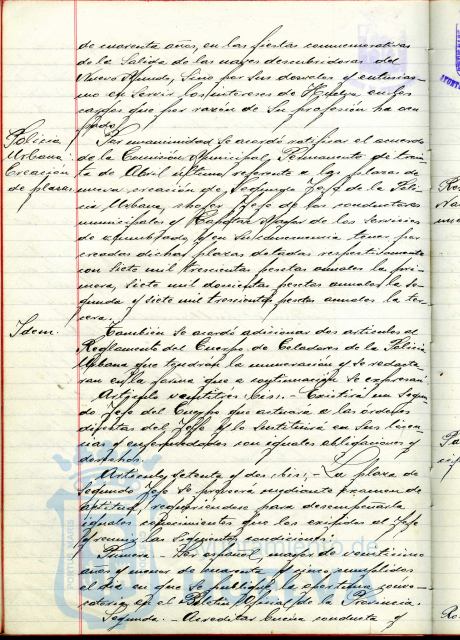 de cuarenta años, en las fiestas conmemorativas
de la Salida de las naves descubridoras del
Nuevo Mundo, sino por sus desvelos y entusias-
mo en servir los intereses de Huelva en los
cargos que por razón de su profesión ha ocu-
pado.
Policía
Urbana
Creación
de plazas
Por unanimidad se acordó ratificar el acuerdo
de la Comisión Municipal Permanente de trein-
ta de Abril último, referente a las plazas de
nueva creación de Segundo Jefe de la Poli-
cía Urbana, chofer Jefe de los conductores
municipales y Capataz Mayor de los Servicios
de alumbrado, y en su consecuencia tener por
creadas dichas plazas dotadas respectivamente
con siete mil trescientas pesetas anuales la pri-
mera, siete mil doscientas pesetas anuales la se-
gunda y siete mil trescientas pesetas anuales la ter-
cera.
Idem.
También se acordó adicionar dos artículos al
Reglamento del Cuerpo de Celadores de la Policía
Urbana que tendrán la numeración y se redacta-
rán en la forma que a continuación se expresan:
Artículo veintitres, bis.- Existirá un Segun-
do Jefe del Cuerpo que actuará a las órdenes
directas del Jefe y lo sustituirá en sus licen-
cias y enfermedades con iguales obligaciones y
derechos.
Artículo setenta y dos, bis.- La plaza de
Segundo Jefe se proveerá mediante examen de
aptitud, requiriéndose para desempeñarla
iguales conocimientos que los exigidos al Jefe
y reunir las siguientes condiciones:
Primera.- Ser mayor de veinticinco
años y menor de cuarenta y cinco cumplidos
el día en que se publique la oportuna convo-
catoria en el Boletín Oficial de la Provincia.
Segunda.- Acreditar buena conducta y
Ayuntamiento de
HUELVA
PORTUS MARIS